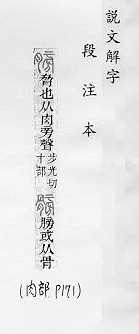 説文解字
段注本
膀 脅也从肉旁聲 步光切 十部 髈 膀或从骨
(肉部 P171)